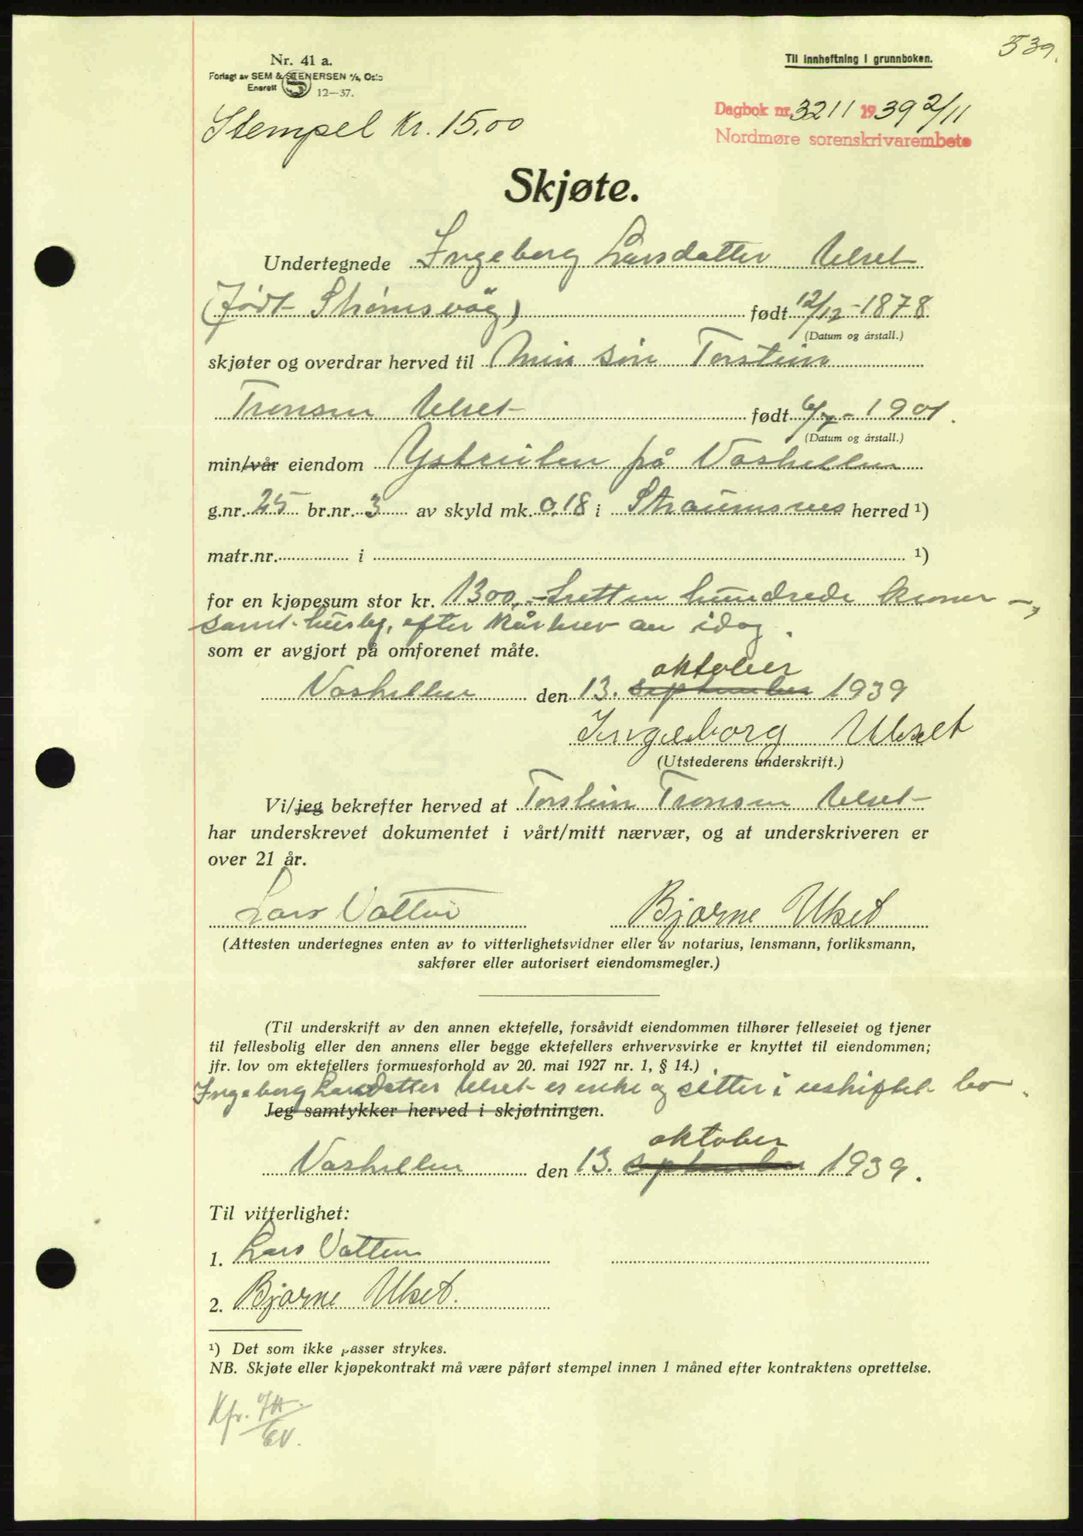 539.
Nr. 41 a.
Forlagt av SEM & STENERSEN A/S, Oslo
Enerett S 12—37.
Til innheftning i grunnboken.
Stempel Kr. 15.00
Dagbok nr. 3211 1939 2/11
Nordmøre sorenskrivarembete
Skjøte.
Undertegnede Ingeborg Larsdatter Ulset
(født Strømsvåg) født 12/12-1878
(Datum og årstall.)
skjøter og overdrar herved til min sön Torstein
Tronsen Ulset født 6/7-1901.
(Datum og årstall.)
min/vår eiendom på Vashellen
g.nr. 25 br.nr. 3 av skyld mk. 0.18 i Straumsnes herred ¹)
matr.nr. i ¹)
for en kjøpesum stor kr. 1300,- tretten hundrede kroner -,
samt husly, efter kårbrev av idag.
som er avgjort på omforenet måte.
oktober
Vashellen den 13. september 1939
Ingeborg Ulset
(Utstederens underskrift.)
Vi/jeg bekrefter herved at Torstein Tronsen Ulset
har underskrevet dokumentet i vårt/mitt nærvær, og at underskriveren er
over 21 år.
Lars Vatten Bjarne Ulset
(Attesten undertegnes enten av to vitterlighetsvidner eller av notarius, lensmann, forliksmann,
sakfører eller autorisert eiendomsmegler.)
(Til underskrift av den annen ektefelle, forsåvidt eiendommen tilhører felleseiet og tjener
til fellesbolig eller den annens eller begge ektefellers erhvervsvirke er knyttet til eiendommen;
jfr. lov om ektefellers formuesforhold av 20. mai 1927 nr. 1, § 14.)
Ingeborg Larsdatter Ulset er enke og sitter i uskiftet bo.
Jeg samtykker herved i skjøtningen.
oktober
Vashellen den 13. september 1939.
Til vitterlighet:
1. Lars Vatten
2. Bjarne Ulset.
¹) Det som ikke passer strykes.
NB. Skjøte eller kjøpekontrakt må være påført stempel innen 1 måned efter kontraktens oprettelse.
Kfr.